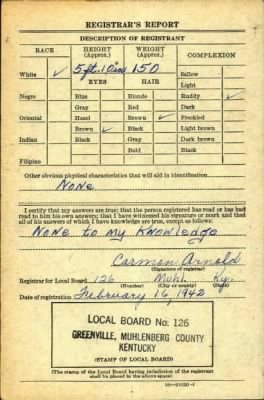 REGISTRAR'S REPORT
DESCRIPTION OF REGISTRANT
RACE HEIGHT (Approx.) WEIGHT (Approx.) COMPLEXION
White ✓ 5 ft. 10 in 150 Sallow
EYES HAIR Light
Negro Blue Blonde Ruddy ✓
Gray Red Dark
Oriental Hazel Brown ✓ Freckled
Brown ✓ Black Light brown
Indian Black Gray Dark brown
Bald Black
Filipino
Other obvious physical characteristics that will aid in identification
None
I certify that my answers are true; that the person registered has read or has had
read to him his own answers; that I have witnessed his signature or mark and that
all of his answers of which I have knowledge are true, except as follows:
None to my Knowledge
Carmen Arnold
(Signature of registrar)
Registrar for Local Board 126 Muhl. Ky.
(Number) (City or county) (State)
Date of registration February 16, 1942
LOCAL BOARD No. 126
GREENVILLE, MUHLENBERG COUNTY
KENTUCKY
(STAMP OF LOCAL BOARD)
(The stamp of the Local Board having jurisdiction of the registrant
shall be placed in the above space)